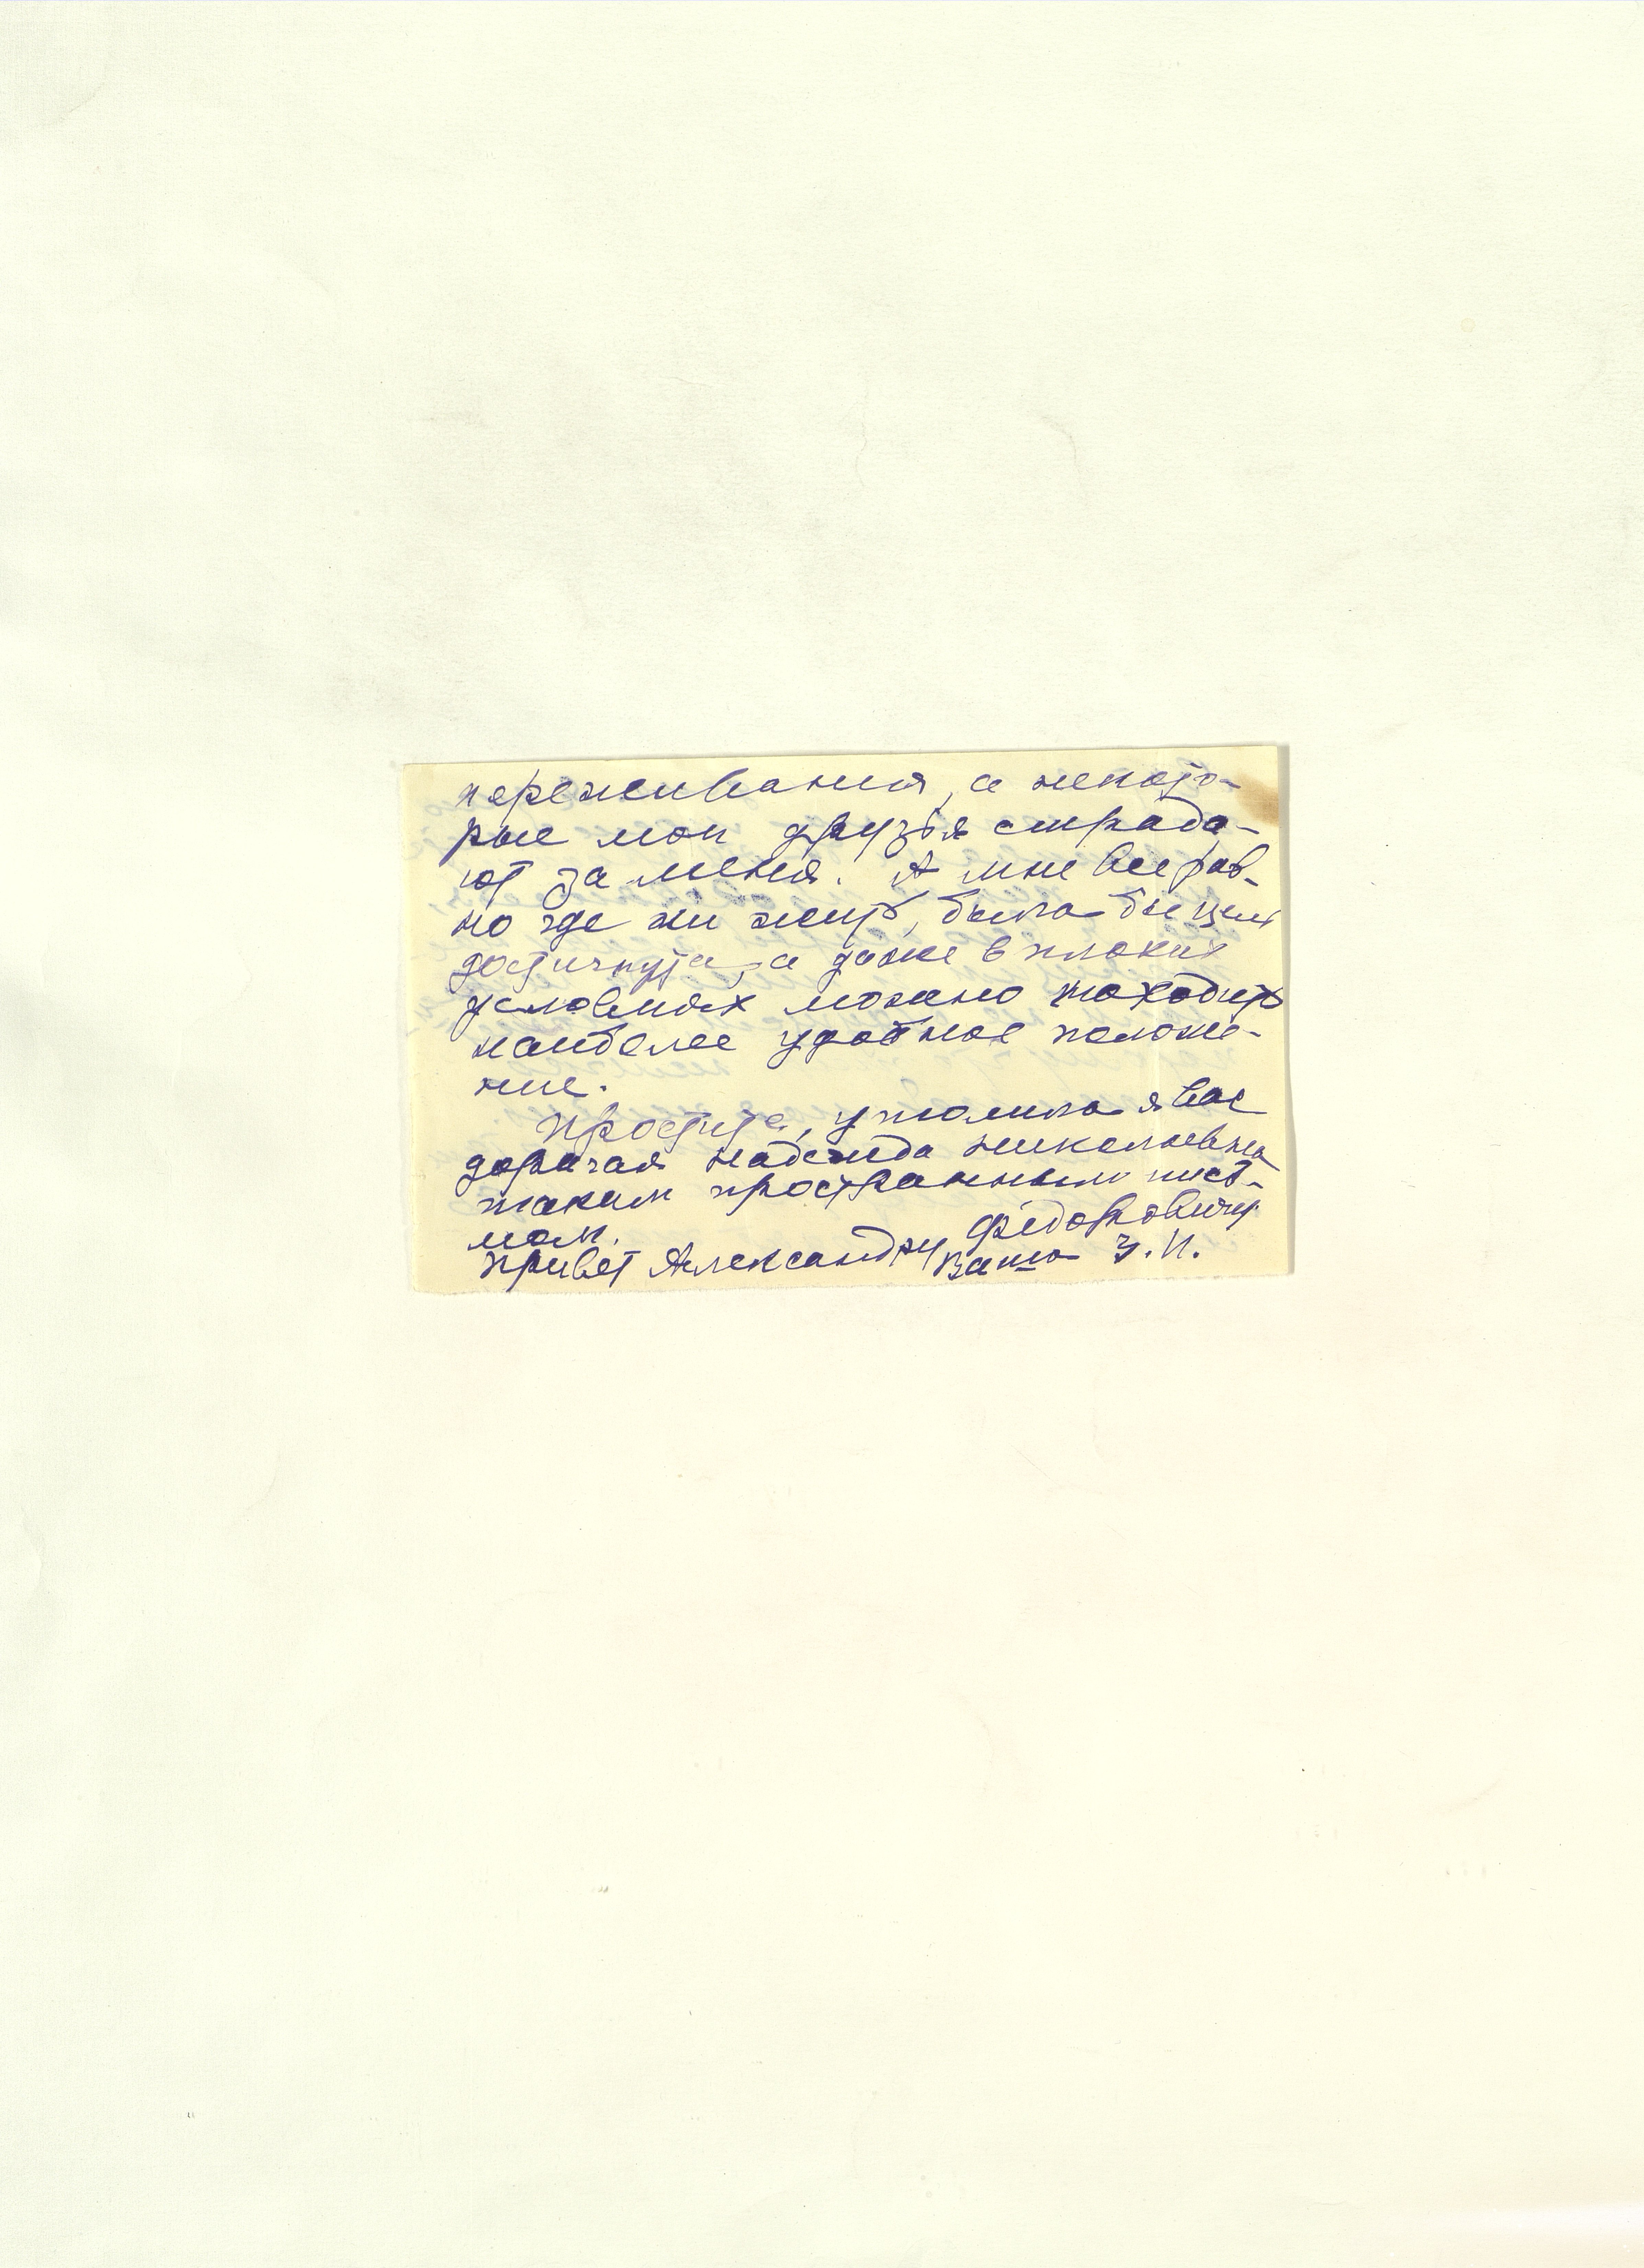 переживания, а некото-
рые мои друзья страда-
ют за меня. А мне все рав-
но где ни жить, была бы цель
достигнута, а даже в плохих
условиях можно находить
наиболее удобное положе-
ние.
Простите, утомила я Вас
дорогая Надежда Николаевна
таким пространным пись-
мом.
Привет Александру Федоровичу
Ваша З. И.